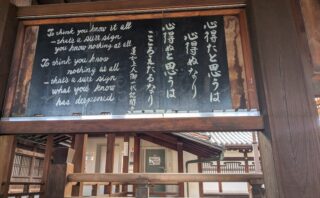 To think you know it all
- that's a sure sign
you know nothing at all
To think you know
nothing at all
- that's a sure sign
what you know
has deepened
心得たと思うは
心得ぬなり
心得ぬと思うは
こころえたるなり
蓮如上人御一代記聞書